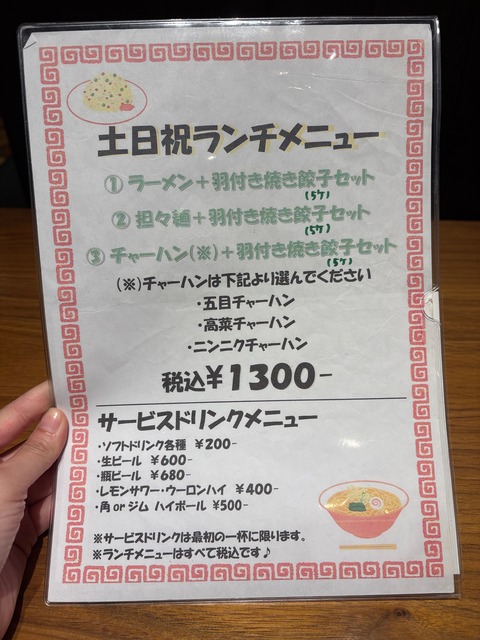 土日祝ランチメニュー
① ラーメン+羽付き焼き餃子セット
(5ケ)
② 担々麺+羽付き焼き餃子セット
(5ケ)
③ チャーハン(※)+羽付き焼き餃子セット
(5ケ)
(※)チャーハンは下記より選んでください
・五目チャーハン
・高菜チャーハン
・ニンニクチャーハン
税込¥1300-
サービスドリンクメニュー
・ソフトドリンク各種 ¥200-
・生ビール ¥600-
・瓶ビール ¥680-
・レモンサワー・ウーロンハイ ¥400-
・角orジム ハイボール ¥500-
※サービスドリンクは最初の一杯に限ります。
※ランチメニューはすべて税込です♪